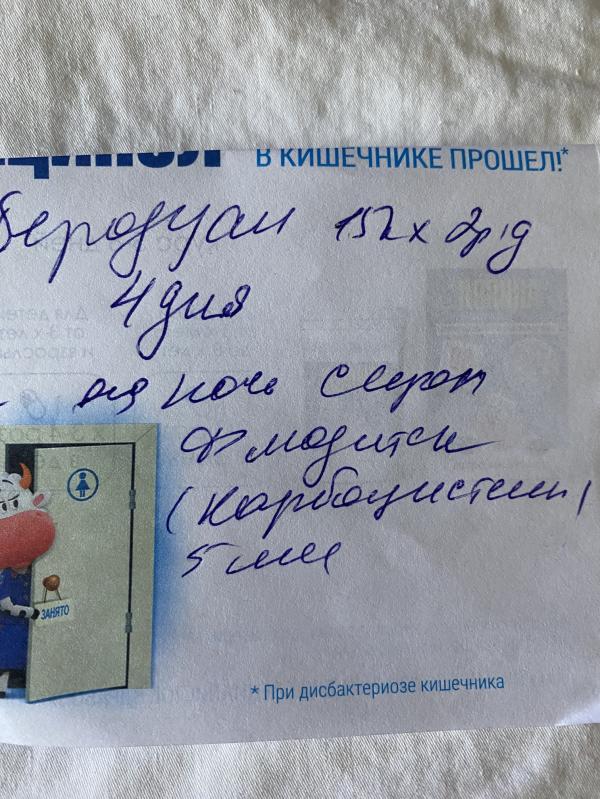 В КИШЕЧНИКЕ ПРОШЕЛ!*
беродуал 15к х 2р/д
4 дня
на ночь сироп
Флюдитек
(Карбоцистеин)
5 мл
ЗАНЯТО
* При дисбактериозе кишечника